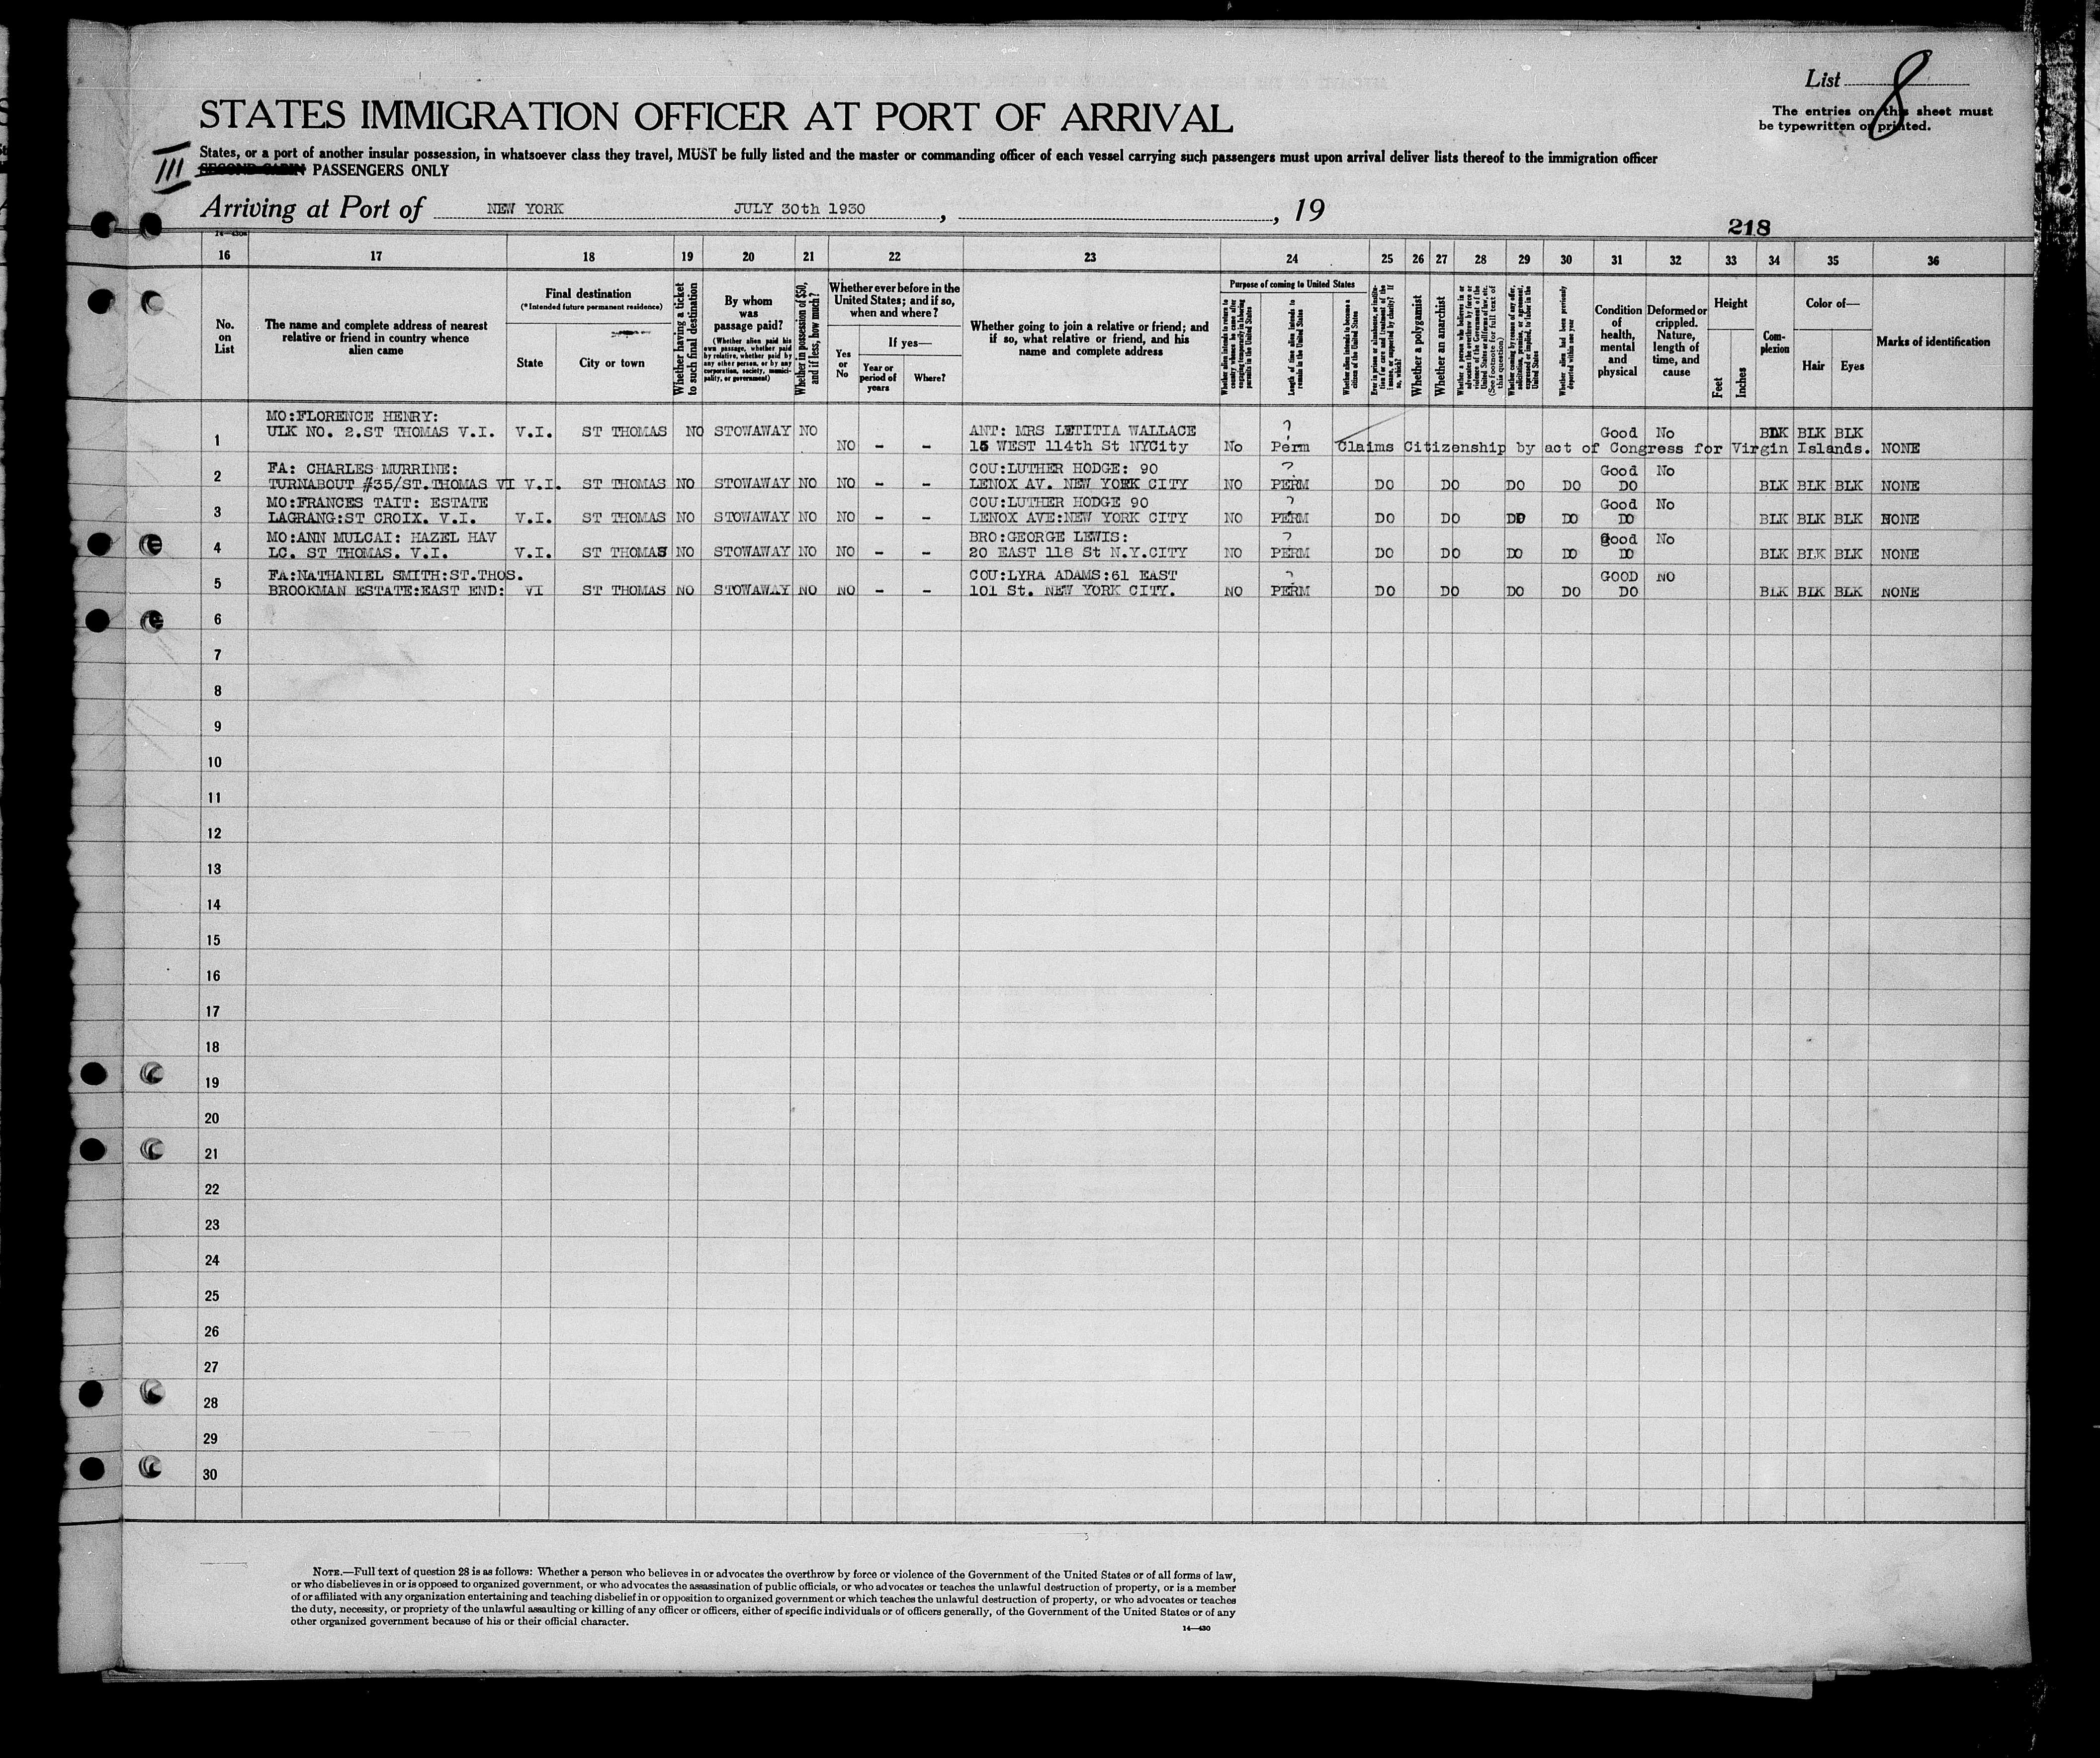 List 8
The entries on this sheet must
be typewritten or printed.
STATES IMMIGRATION OFFICER AT PORT OF ARRIVAL
III
States, or a port of another insular possession, in whatsoever class they travel, MUST be fully listed and the master or commanding officer of each vessel carrying such passengers must upon arrival deliver lists thereof to the immigration officer
SECOND-CABIN PASSENGERS ONLY
Arriving at Port of NEW YORK JULY 30th 1930, , 19
218
16 17 18 19 20 21 22 23 24 25 26 27 28 29 30 31 32 33 34 35 36
No. on List
The name and complete address of nearest relative or friend in country whence alien came
Final destination
(*Intended future permanent residence)
State
City or town
Whether having a ticket to such final destination
By whom was passage paid?
(Whether alien paid his own passage, whether paid by relative, whether paid by any other person, or by any corporation, society, municipality, or government)
Whether in possession of $50, and if less, how much?
Whether ever before in the United States; and if so, when and where?
Yes or No
If yes—
Year or period of years
Where?
Whether going to join a relative or friend; and if so, what relative or friend, and his name and complete address
Purpose of coming to United States
Whether alien intends to return to country whence he came after engaging temporarily in laboring pursuits in the United States
Length of time alien intends to remain in the United States
Whether alien intends to become a citizen of the United States
Ever in prison or almshouse, or institution for care and treatment of the insane, or supported by charity? If so, which?
Whether a polygamist
Whether an anarchist
Whether a person who believes in or advocates the overthrow by force or violence of the Government of the United States or all forms of law, etc. (See footnote for full text of this question)
Whether coming by reason of any offer, solicitation, promise, or agreement, expressed or implied, to labor in the United States
Whether alien had been previously deported within one year
Condition of health, mental and physical
Deformed or crippled. Nature, length of time, and cause
Height
Feet
Inches
Complexion
Color of—
Hair
Eyes
Marks of identification
MO:FLORENCE HENRY:
1 ULK NO. 2.ST THOMAS V.I. V.I. ST THOMAS NO STOWAWAY NO NO - - ANT: MRS LETITIA WALLACE ? Good No BLK BLK BLK
15 WEST 114th St NYCity No Perm Claims Citizenship by act of Congress for Virgin Islands. NONE
FA: CHARLES MURRINE: COU:LUTHER HODGE: 90 ? Good No
2 TURNABOUT #35/ST.THOMAS VI V.I. ST THOMAS NO STOWAWAY NO NO - - LENOX AV. NEW YORK CITY NO PERM DO DO DO DO DO BLK BLK BLK NONE
MO:FRANCES TAIT: ESTATE COU:LUTHER HODGE 90 ? Good No
3 LAGRANG:ST CROIX. V.I. V.I. ST THOMAS NO STOWAWAY NO NO - - LENOX AVE:NEW YORK CITY NO PERM DO DO DO DO DO BLK BLK BLK NONE
MO:ANN MULCAI: HAZEL HAV BRO:GEORGE LEWIS: ? Good No
4 LC. ST THOMAS. V.I. V.I. ST THOMAS NO STOWAWAY NO NO - - 20 EAST 118 St N.Y.CITY NO PERM DO DO DO DO DO BLK BLK BLK NONE
FA:NATHANIEL SMITH:ST.THOS. COU:LYRA ADAMS:61 EAST ? GOOD NO
5 BROOKMAN ESTATE:EAST END: VI ST THOMAS NO STOWAWAY NO NO - - 101 St. NEW YORK CITY. NO PERM DO DO DO DO DO BLK BLK BLK NONE
6
7
8
9
10
11
12
13
14
15
16
17
18
19
20
21
22
23
24
25
26
27
28
29
30
NOTE.—Full text of question 28 is as follows: Whether a person who believes in or advocates the overthrow by force or violence of the Government of the United States or of all forms of law,
or who disbelieves in or is opposed to organized government, or who advocates the assassination of public officials, or who advocates or teaches the unlawful destruction of property, or is a member
of or affiliated with any organization entertaining and teaching disbelief in or opposition to organized government or which teaches the unlawful destruction of property, or who advocates or teaches
the duty, necessity, or propriety of the unlawful assaulting or killing of any officer or officers, either of specific individuals or of officers generally, of the Government of the United States or of any
other organized government because of his or their official character.
14—430